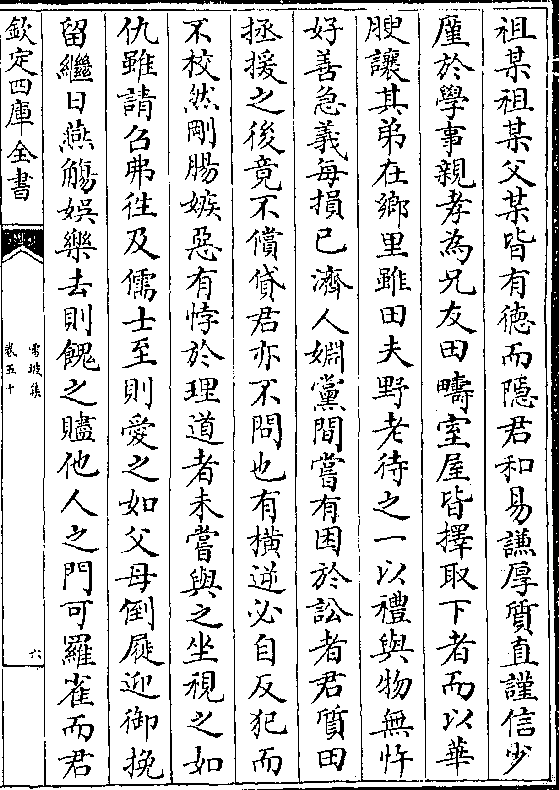 祖某祖某父某皆有德而隠君和易謙厚質直謹信少
廑於學事親孝為兄友田疇室屋皆擇取下者而以華
腴讓其弟在鄉里雖田夫野老待之一以禮與物無忤
好善急義每損已濟人婣黨間嘗有困於訟者君質田
拯援之後竟不償貸君亦不問也有横逆必自反犯而
不校然剛腸嫉惡有悖於理道者未嘗與之坐視之如
仇雖請召弗徃及儒士至則愛之如父母倒屣迎御挽
留繼日燕觴娯樂去則餽之贐他人之門可羅雀而君
欽定四庫全書
雪坡集
卷五十
六